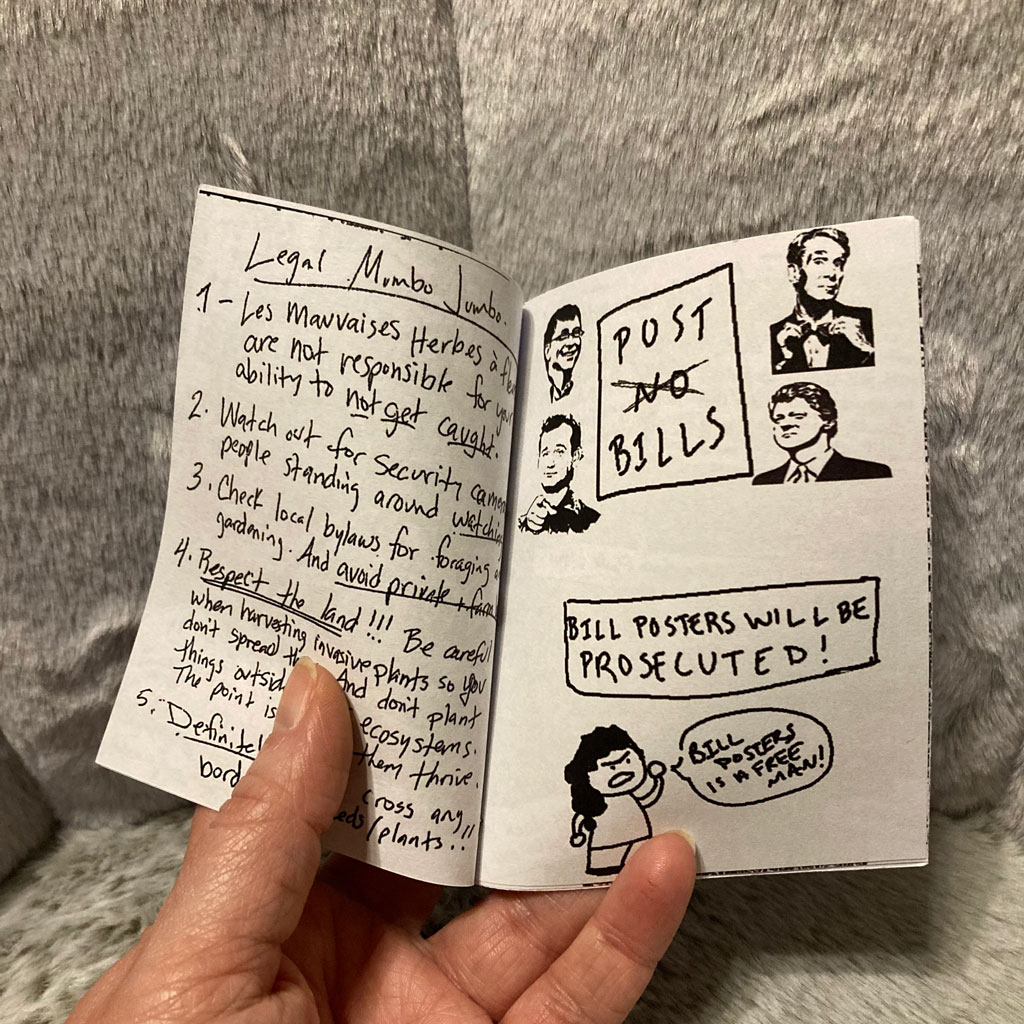 Legal Mumbo Jumbo.
1- Les Mauvaises Herbes à
are not responsible for
ability to not get caught.
2. Watch out for security
people standing around
3. Check local bylaws for foraging
gardening. And avoid private +
4. Respect the land!!! Be careful
when harvesting invasive plants so you
don't spread And don't plant
things ecosystems.
The point is them thrive.
5.
cross any
/plants!!
POST
NO
BILLS
BILL POSTERS WILL BE
PROSECUTED!
BILL
POSTERS
IS A FREE
MAN!